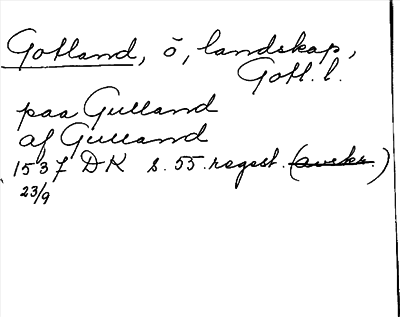 Gotland, ö, landskap,
Gotl. l.
paa Gulland
af Gulland
1537 DK s. 55. regest. (avskr.)
23/9